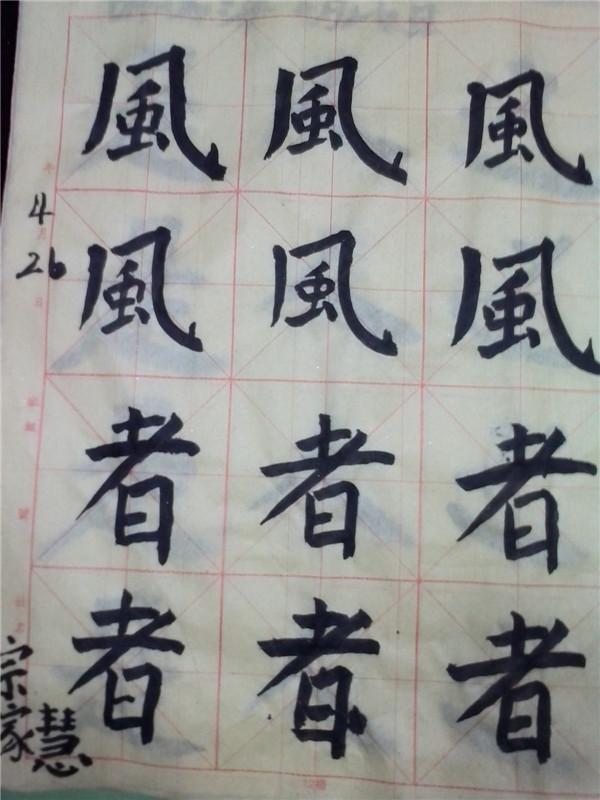 風風風
4
風風風
26
者者者
者者者
宗家慧